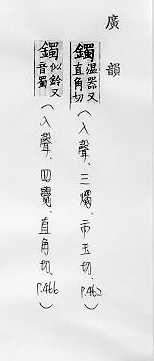 廣韻
鐲溫器又直角切(入聲、三燭、市玉切、P.462)
鐲似鈴又音蜀(入聲、四覺、直角切、P.466)